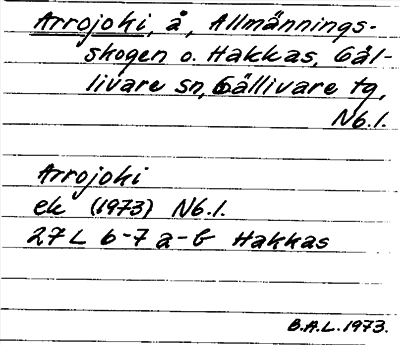 Arrojoki, å, Allmännings-
skogen o. Hakkas, Gäl-
livare sn, Gällivare tg,
Nb.l.
Arrojoki
ek (1973) Nb.l.
27L 6-7 a-b Hakkas
B.A.L. 1973.